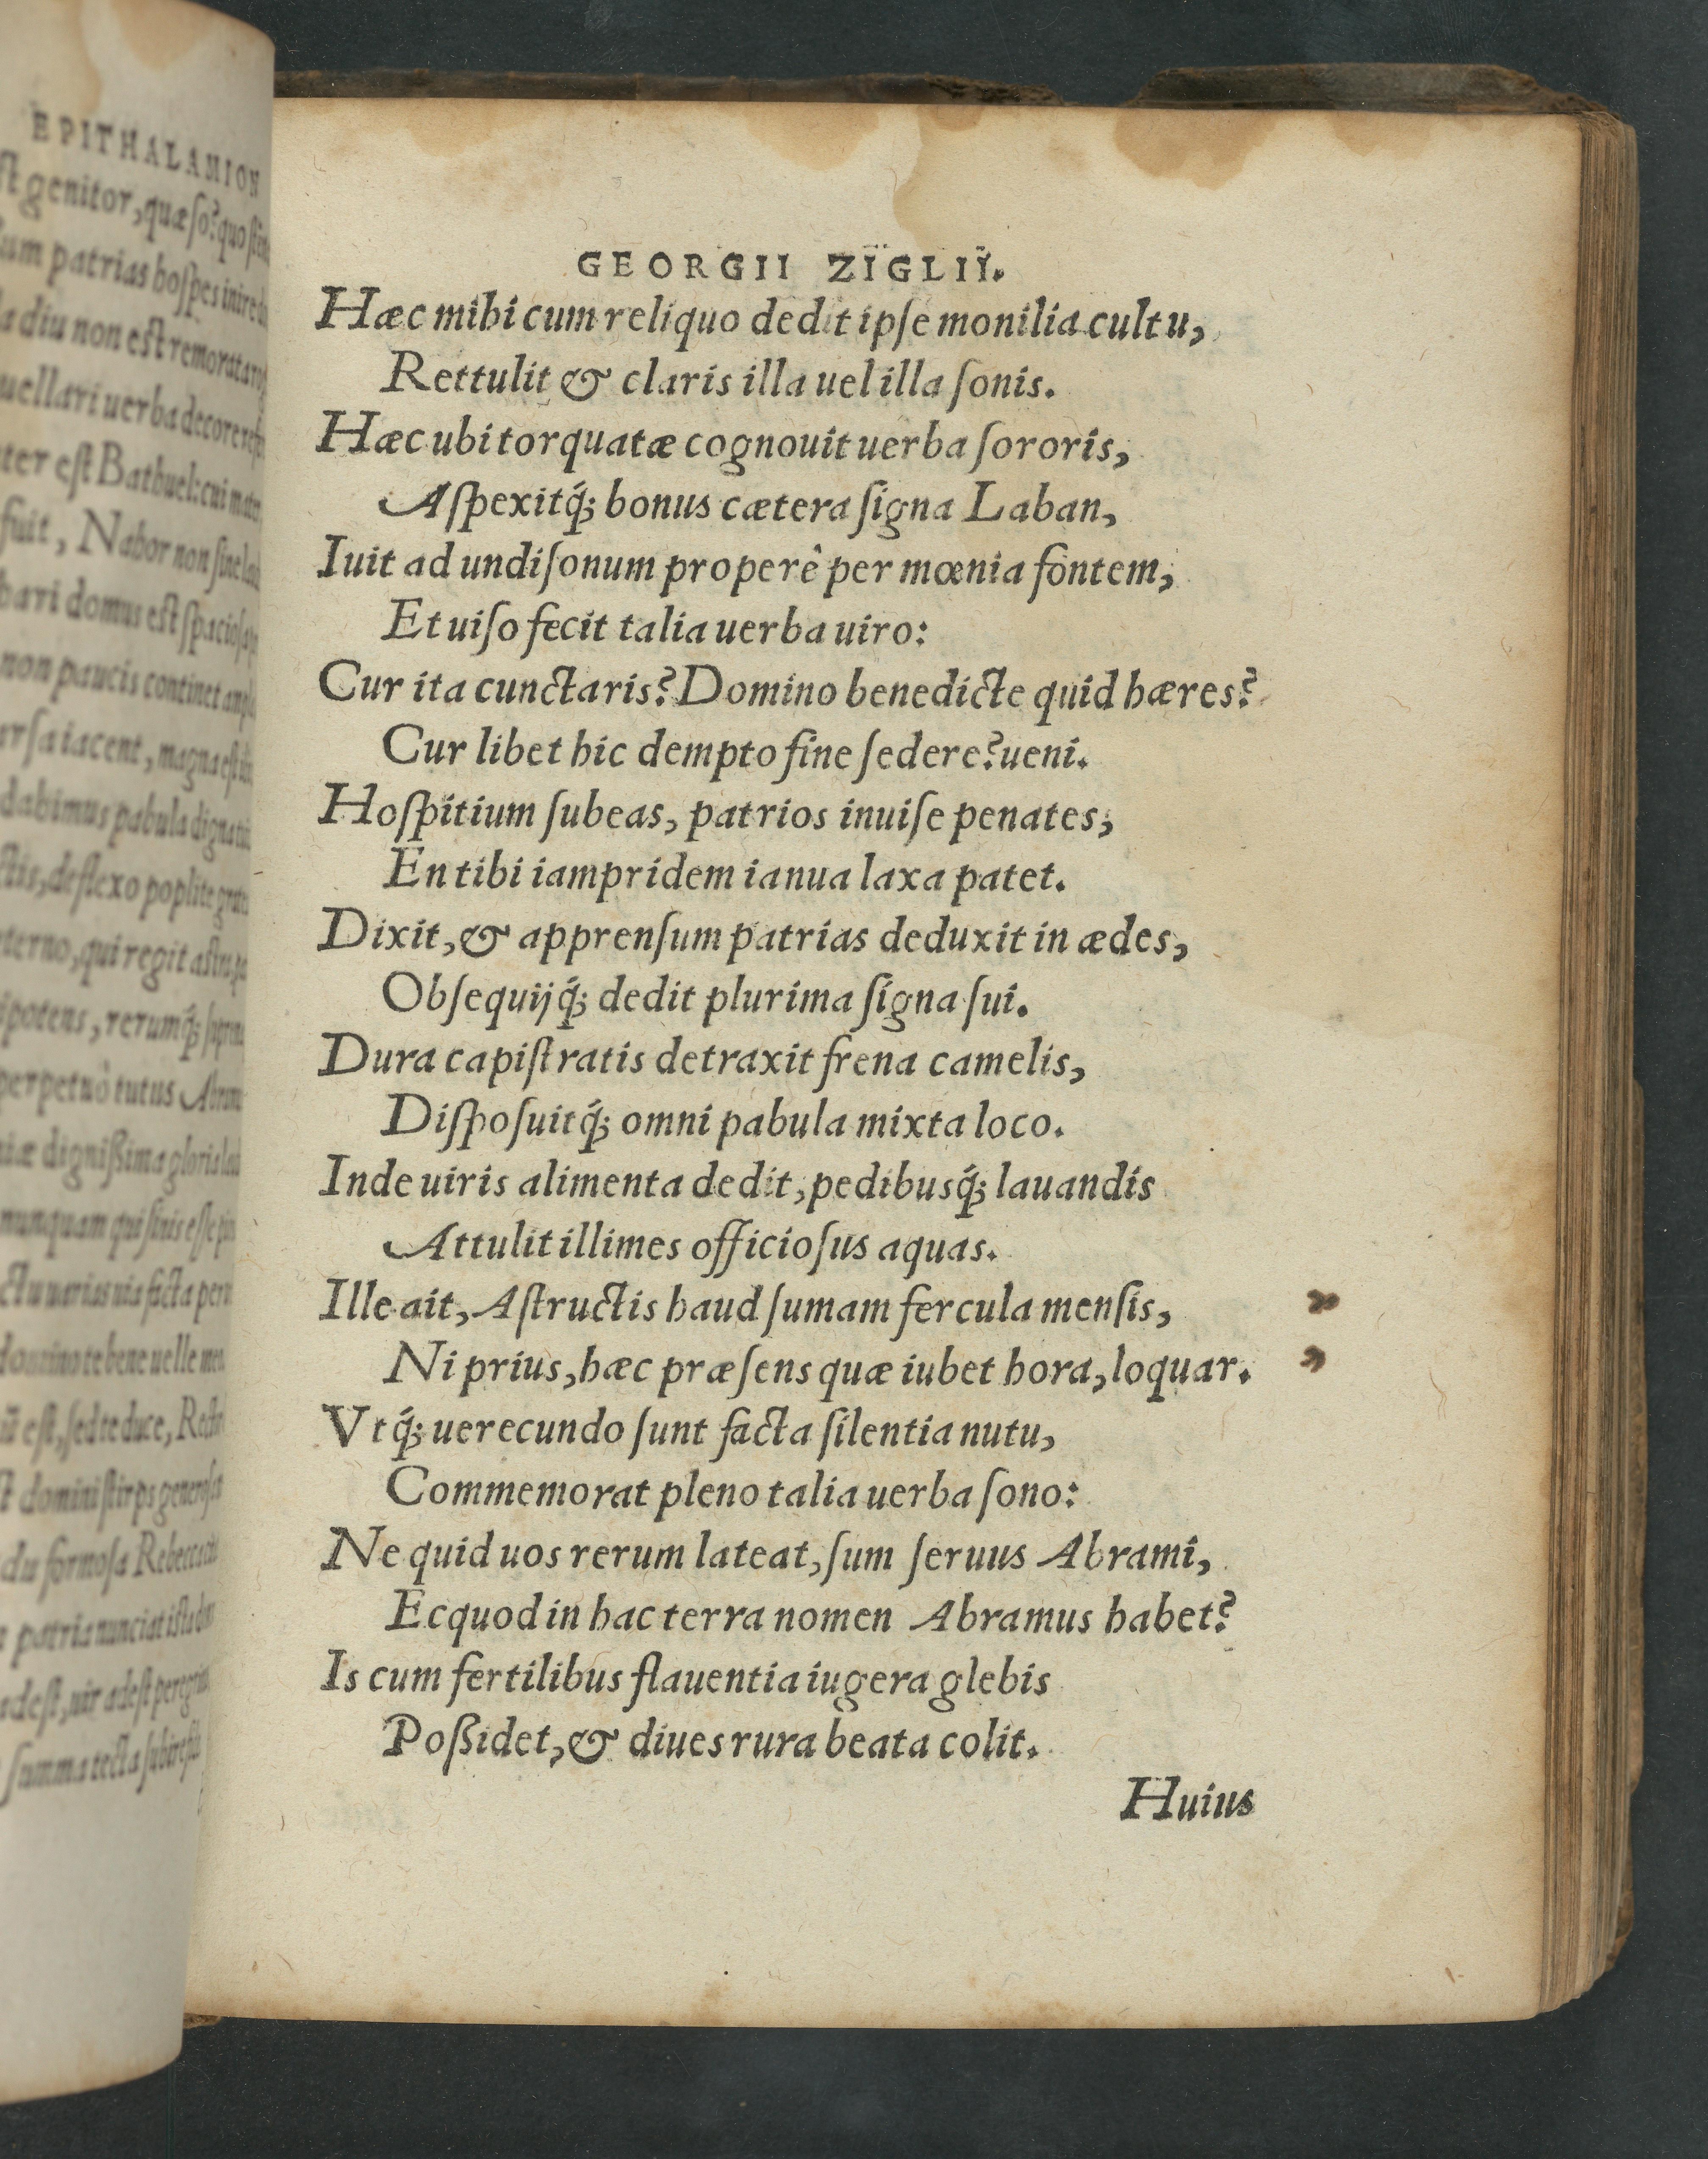 EPITHALAMION
genitor, quæſo? quo
patrias hoſpes inire
diu non eſt remorata
uerba decore
eſt Bathuel: cui
fuit, Nahor non ſine
domus eſt ſpacioſa
non paucis continet
iacent, magna eſt
dabimus pabula digna
deflexo poplite
qui regit aſtra
rerumq́;
perpetuò tutus Abram
digniſsima
nunquam qui ſinis eſſe
uarias uia facta per
domino te bene uelle
eſt, ſed te duce,
domini ſtirps
formoſa Rebecca
patri a nunciat
adeſt, uir adeſt
ſumma tecta ſubire
GEORGII ZÏGLIÏ.
Hæc mihi cum reliquo dedit ipſe monilia cultu,
Rettulit & claris illa uel illa ſonis.
Hæc ubi torquatæ cognouit uerba ſororis,
Aſpexitq́; bonus cætera ſigna Laban,
Iuit ad undiſonum properê per mœnia fontem,
Et uiſo fecit talia uerba uiro:
Cur ita cunctaris? Domino benedicte quid hæres?
Cur libet hic dempto fine ſedere? ueni.
Hoſpitium ſubeas, patrios inuiſe penates,
En tibi iampridem ianua laxa patet.
Dixit, & apprenſum patrias deduxit in ædes,
Obſequijq́; dedit plurima ſigna ſui.
Dura capiſtratis detraxit frena camelis,
Diſpoſuitq́; omni pabula mixta loco.
Inde uiris alimenta dedit, pedibusq́; lauandis
Attulit illimes officioſus aquas.
Ille ait, Aſtructis haud ſumam fercula menſis, „
Ni prius, hæc præſens quæ iubet hora, loquar. „
Vtq́; uerecundo ſunt facta ſilentia nutu,
Commemorat pleno talia uerba ſono:
Ne quid uos rerum lateat, ſum ſeruus Abrami,
Ecquod in hac terra nomen Abramus habet?
Is cum fertilibus flauentia iugera glebis
Poßidet, & diues rura beata colit.
Huius